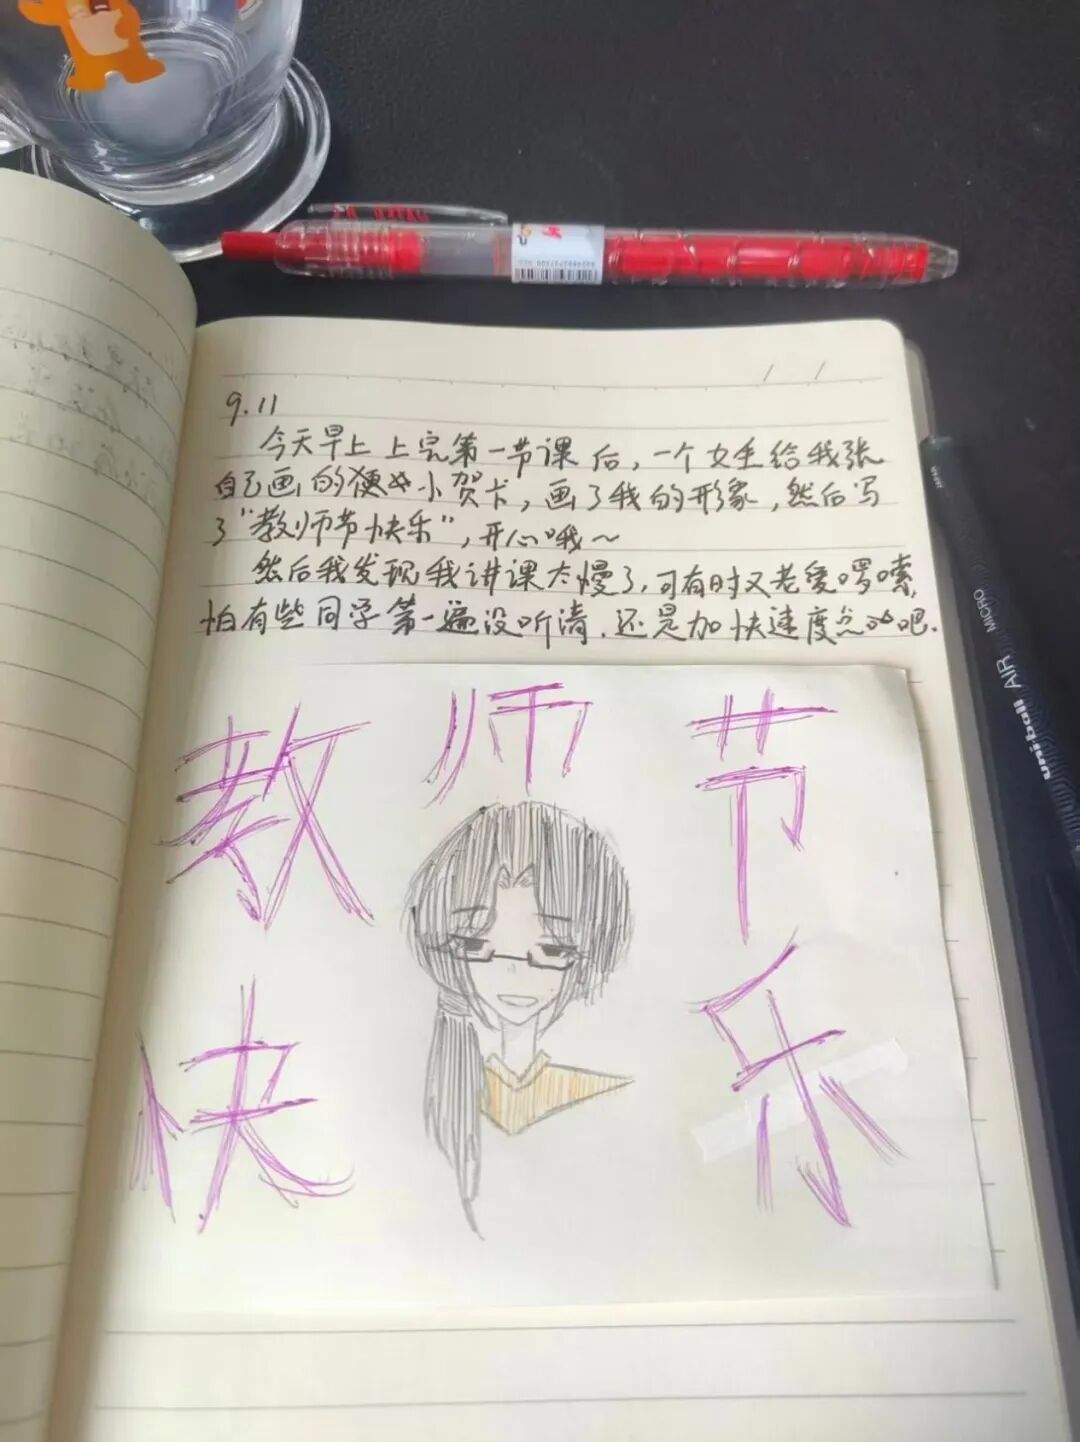 9.11
今天早上上完第一节课后，一个女生给我张
自己画的小贺卡，画了我的形象，然后写
了“教师节快乐”，开心哦～
然后我发现我讲课太慢了，可有时又老爱啰嗦，
怕有些同学第一遍没听清，还是加快速度点吧.
教师节
快乐
uniball AIR MICRO
JAPAN